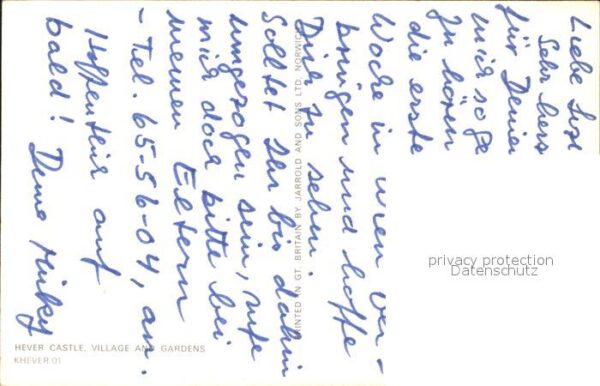 Liebe
Sehr herz
für Deinen
mich sogl
zu hören
die erste
Woche in Wien ver-
bringen und hoffe
Dich zu sehen.
Solltet Ihr bis dahin
umgezogen sein, rufe
mich doch bitte bei
meinen Eltern
- Tel. 65-56-04, an.
Hoffentlich auf
bald! Deine
PRINTED IN GT. BRITAIN BY JARROLD AND SONS LTD. NORWICH
HEVER CASTLE, VILLAGE AND GARDENS
KHEVER 01
privacy protection
Datenschutz